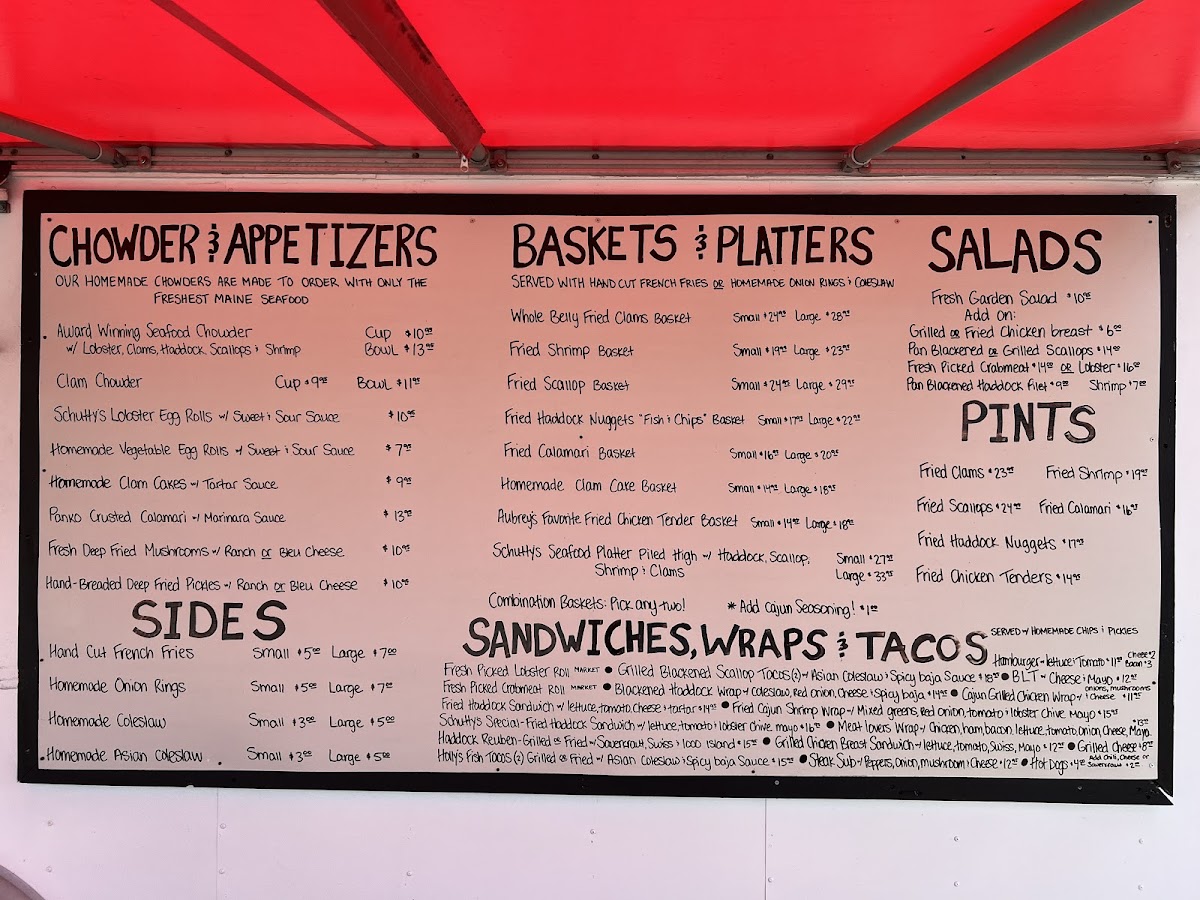 CHOWDER & APPETIZERS
OUR HOMEMADE CHOWDERS ARE MADE TO ORDER WITH ONLY THE
FRESHEST MAINE SEAFOOD
Award Winning Seafood Chowder Cup $10
w/ Lobster, Clams, Haddock, Scallops & Shrimp Bowl $13
Clam Chowder Cup $9 Bowl $11
Schutty's Lobster Egg Rolls w/ Sweet & Sour Sauce $10
Homemade Vegetable Egg Rolls w/ Sweet & Sour Sauce $7
Homemade Clam Cakes w/ Tartar Sauce $9
Panko Crusted Calamari w/ Marinara Sauce $13
Fresh Deep Fried Mushrooms w/ Ranch or Bleu Cheese $10
Hand-Breaded Deep Fried Pickles w/ Ranch or Bleu Cheese $10
SIDES
Hand Cut French Fries Small $5 Large $7
Homemade Onion Rings Small $5 Large $7
Homemade Coleslaw Small $3 Large $5
Homemade Asian Coleslaw Small $3 Large $5
BASKETS & PLATTERS
SERVED WITH HAND CUT FRENCH FRIES OR HOMEMADE ONION RINGS & COLESLAW
Whole Belly Fried Clams Basket Small $24 Large $28
Fried Shrimp Basket Small $19 Large $23
Fried Scallop Basket Small $24 Large $29
Fried Haddock Nuggets "Fish & Chips" Basket Small $17 Large $22
Fried Calamari Basket Small $16 Large $20
Homemade Clam Cake Basket Small $14 Large $18
Aubrey's Favorite Fried Chicken Tender Basket Small $14 Large $18
Schutty's Seafood Platter Piled High w/ Haddock, Scallop, Small $27
Shrimp & Clams Large $33
Combination Baskets: Pick any two! * Add Cajun Seasoning! $1
SALADS
Fresh Garden Salad $10
Add on:
Grilled or Fried Chicken breast $6
Pan Blackened or Grilled Scallops $14
Fresh Picked Crabmeat $14 OR Lobster $16
Pan Blackened Haddock filet $9 Shrimp $7
PINTS
Fried Clams $23 Fried Shrimp $19
Fried Scallops $24 Fried Calamari $16
Fried Haddock Nuggets $17
Fried Chicken Tenders $14
SANDWICHES, WRAPS & TACOS SERVED w/ HOMEMADE CHIPS & PICKLES
Hamburger w/ lettuce & Tomato $11 Cheese $2 Bacon $3
Fresh Picked Lobster Roll MARKET • Grilled Blackened Scallop Tacos (2) w/ Asian Coleslaw & Spicy baja Sauce $18 • BLT w/ Cheese & Mayo $12
Fresh Picked Crabmeat Roll MARKET • Blackened Haddock Wrap w/ Coleslaw, Red onion, Cheese & Spicy baja $14 • Cajun Grilled Chicken Wrap w/ onions, mushrooms & Cheese $11
Fried Haddock Sandwich w/ lettuce, tomato, Cheese & tartar $14 • Fried Cajun Shrimp Wrap w/ Mixed greens, Red Onion, tomato & lobster Chive Mayo $15
Schutty's Special-Fried Haddock Sandwich w/ lettuce, tomato & lobster chive mayo $16 • Meat lovers Wrap w/ Chicken, ham, bacon, lettuce, tomato, Onion, Cheese, Mayo $13
Haddock Reuben-Grilled or Fried w/ Sauerkraut, Swiss & 1000 Island $15 • Grilled Chicken Breast Sandwich w/ lettuce, tomato, Swiss, Mayo $12 • Grilled Cheese $8
Holly's Fish Tacos (2) Grilled or Fried w/ Asian Coleslaw & Spicy baja Sauce $15 • Steak Sub w/ Peppers, Onion, mushroom & Cheese $12 • Hot Dogs $4 Add Chili, Cheese or Sauerkraut $2